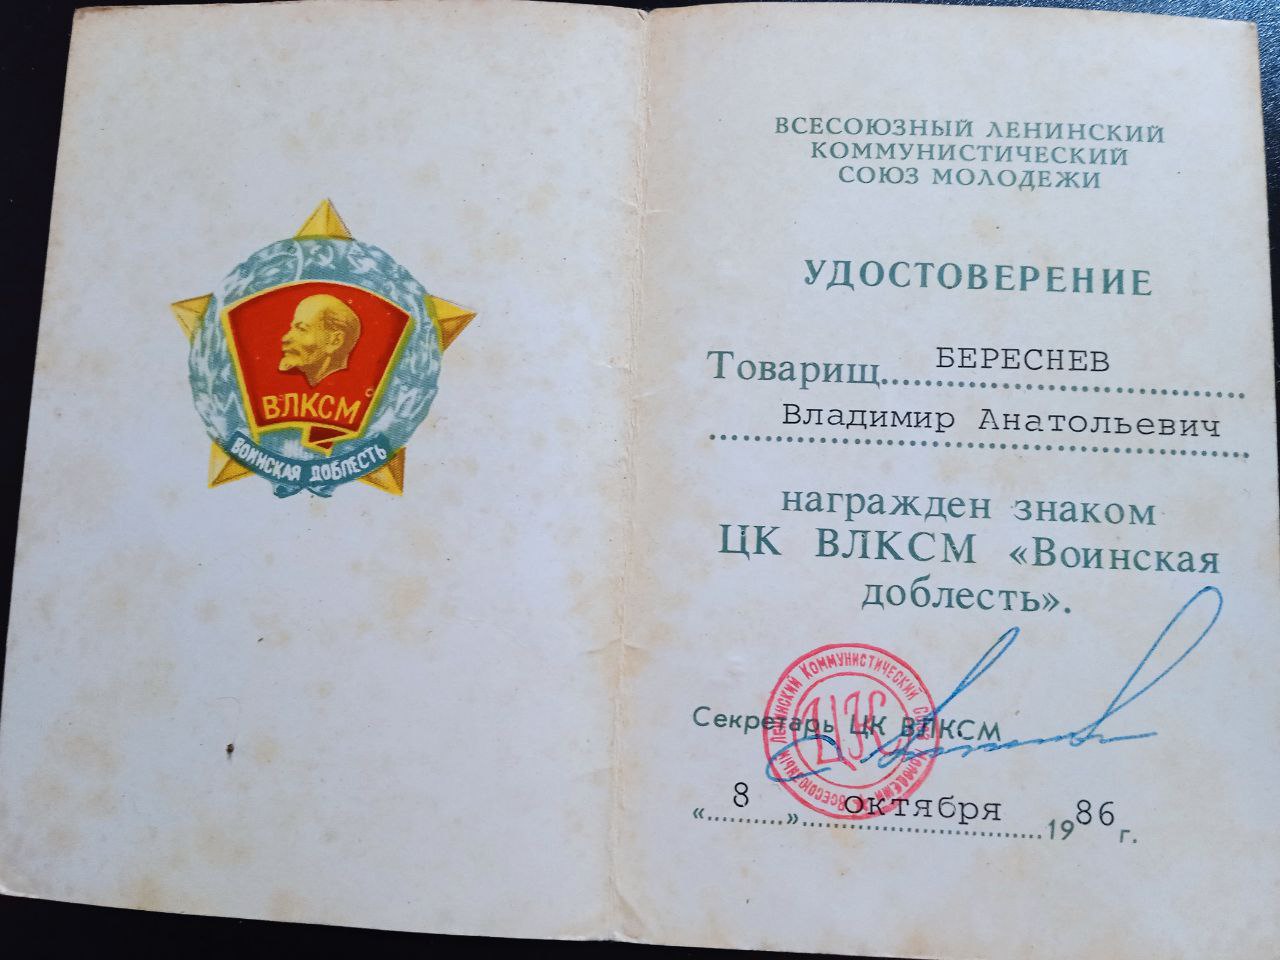 ВЛКСМ
ВОИНСКАЯ ДОБЛЕСТЬ
ВСЕСОЮЗНЫЙ ЛЕНИНСКИЙ
КОММУНИСТИЧЕСКИЙ
СОЮЗ МОЛОДЕЖИ
УДОСТОВЕРЕНИЕ
Товарищ БЕРЕСНЕВ
Владимир Анатольевич
награжден знаком
ЦК ВЛКСМ «Воинская
доблесть».
Секретарь ЦК ВЛКСМ
ВСЕСОЮЗНЫЙ ЛЕНИНСКИЙ КОММУНИСТИЧЕСКИЙ СОЮЗ МОЛОДЕЖИ
ЦК
«8» октября 1986 г.